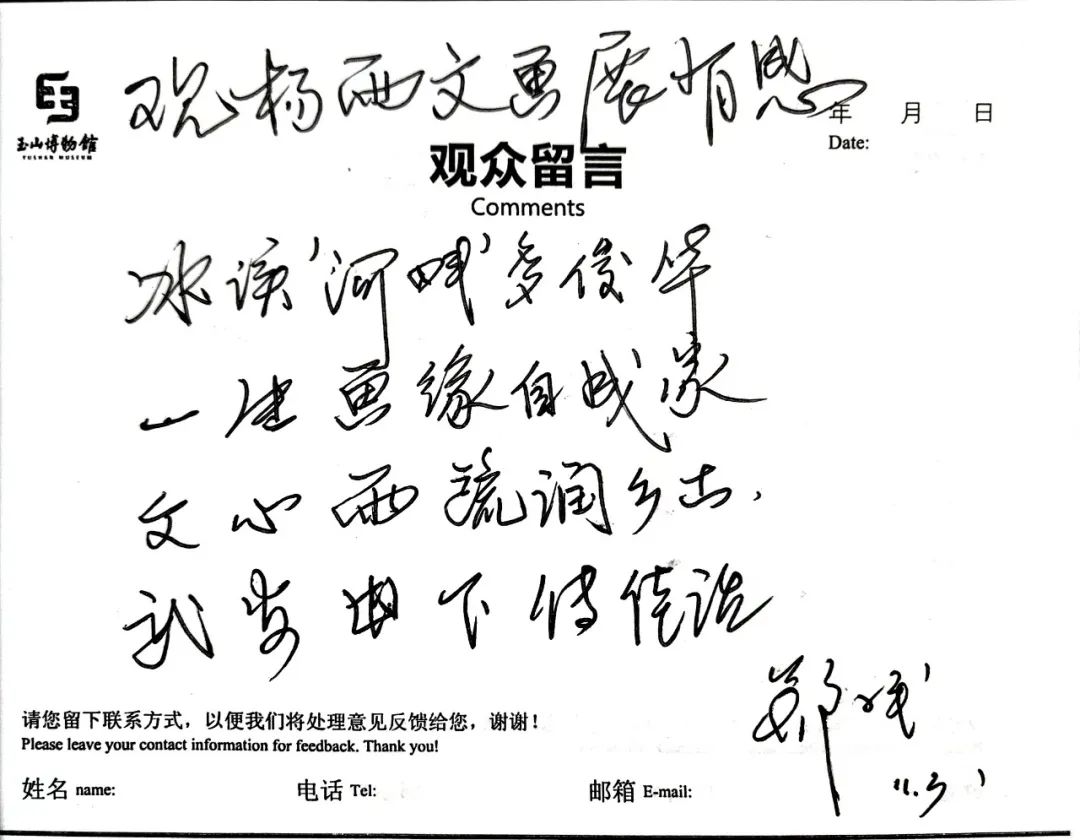 观杨西文画展有感
玉山博物馆
YUSHAN MUSEUM
年 月 日
Date:
观众留言
Comments
冰溪'河畔'多俊华
一生画缘自成家
文心西疏润乡土.
武安山下传佳话
郑
11.3
请您留下联系方式，以便我们将处理意见反馈给您，谢谢！
Please leave your contact information for feedback. Thank you!
姓名 name: 电话 Tel: 邮箱 E-mail: